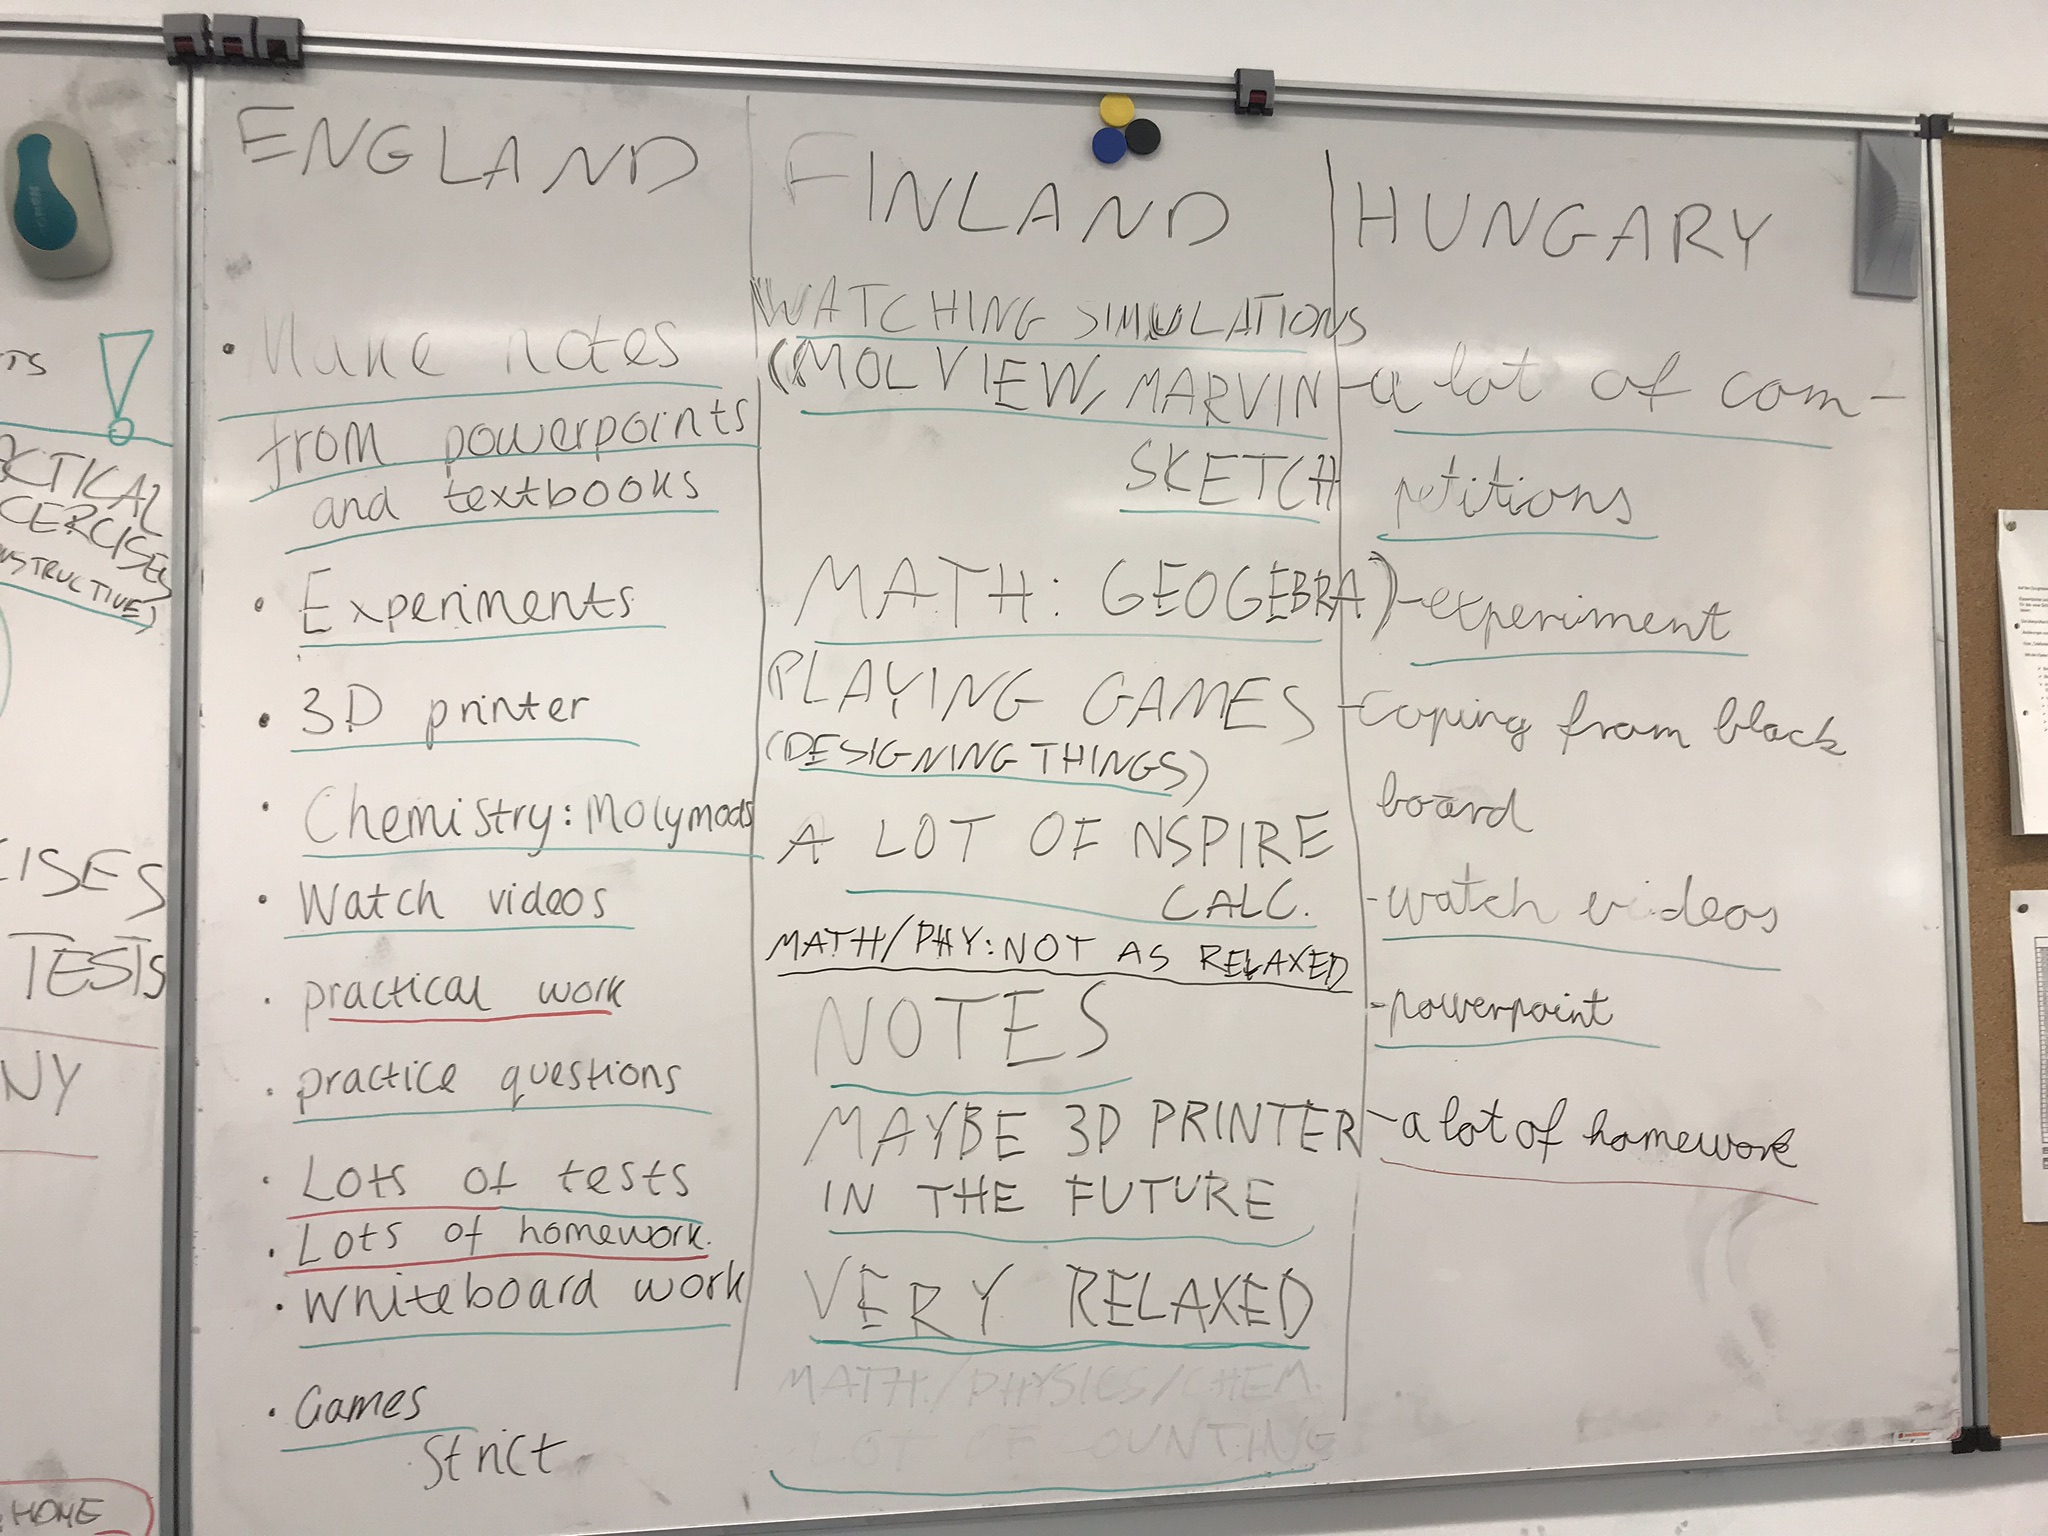 TS
CTICAL
CERCISES
NSTRUCTIVE)
CISES
TESTS
NY
HOME
ENGLAND
• Make notes
from powerpoints
and textbooks
• Experiments
• 3D printer
• Chemistry: Molymods
• Watch videos
• practical work
• practice questions
• Lots of tests
• Lots of homework.
• Whiteboard work
• Games
Strict
FINLAND
WATCHING SIMULATIONS
(MOLVIEW, MARVIN
SKETCH
MATH: GEOGEBRA)
PLAYING GAMES
(DESIGNING THINGS)
A LOT OF NSPIRE
CALC.
MATH/PHY: NOT AS RELAXED
NOTES
MAYBE 3D PRINTER
IN THE FUTURE
VERY RELAXED
MATH./PHYSICS/CHEM.
LOT OF COUNTING
HUNGARY
-a lot of com-
petitions
-experiment
-coping from black
board
-watch videos
-powerpoint
-a lot of homework